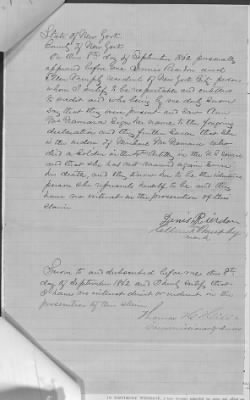 State of New York
County of New York
On this 8th day of September 1862 personally
appeared before me Dennis Riordon and
Ellen residents of New York City persons
whom I certify to be reputable and entitled
to credit and who being by me duly sworn
say that they were present and saw Ann
McNamara sign her name to the foregoing
declaration and they further swear that she
is the widow of Michael McNamara who
died a Soldier in the Artillery in the US
and that she has not married again
his death, and they know her to be the identical
person she represents herself to be and they
have no interest in the prosecution of this
claim
Denis Riordon
Sworn to and subscribed before me this 8th
day of September 1862 and I hereby certify that
I have no interest direct or indirect in the
prosecution of this claim
Thomas